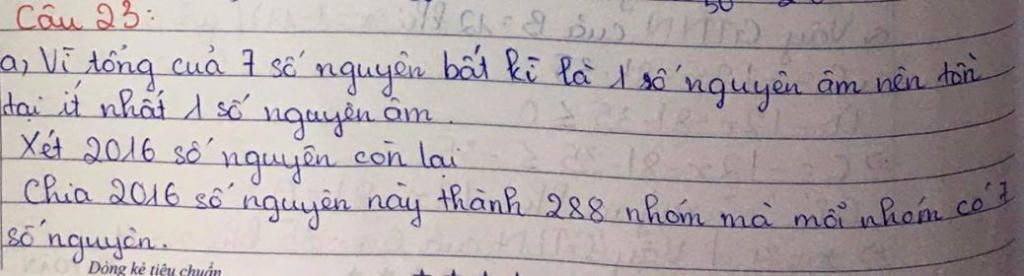 Câu 23:
a, Vì tổng của 7 số nguyên bất kì là 1 số nguyên âm nên tồn
tại ít nhất 1 số nguyên âm.
Xét 2016 số nguyên còn lại
Chia 2016 số nguyên này thành 288 nhóm mà mỗi nhóm có 7
số nguyên.
Dòng kẻ tiêu chuẩn